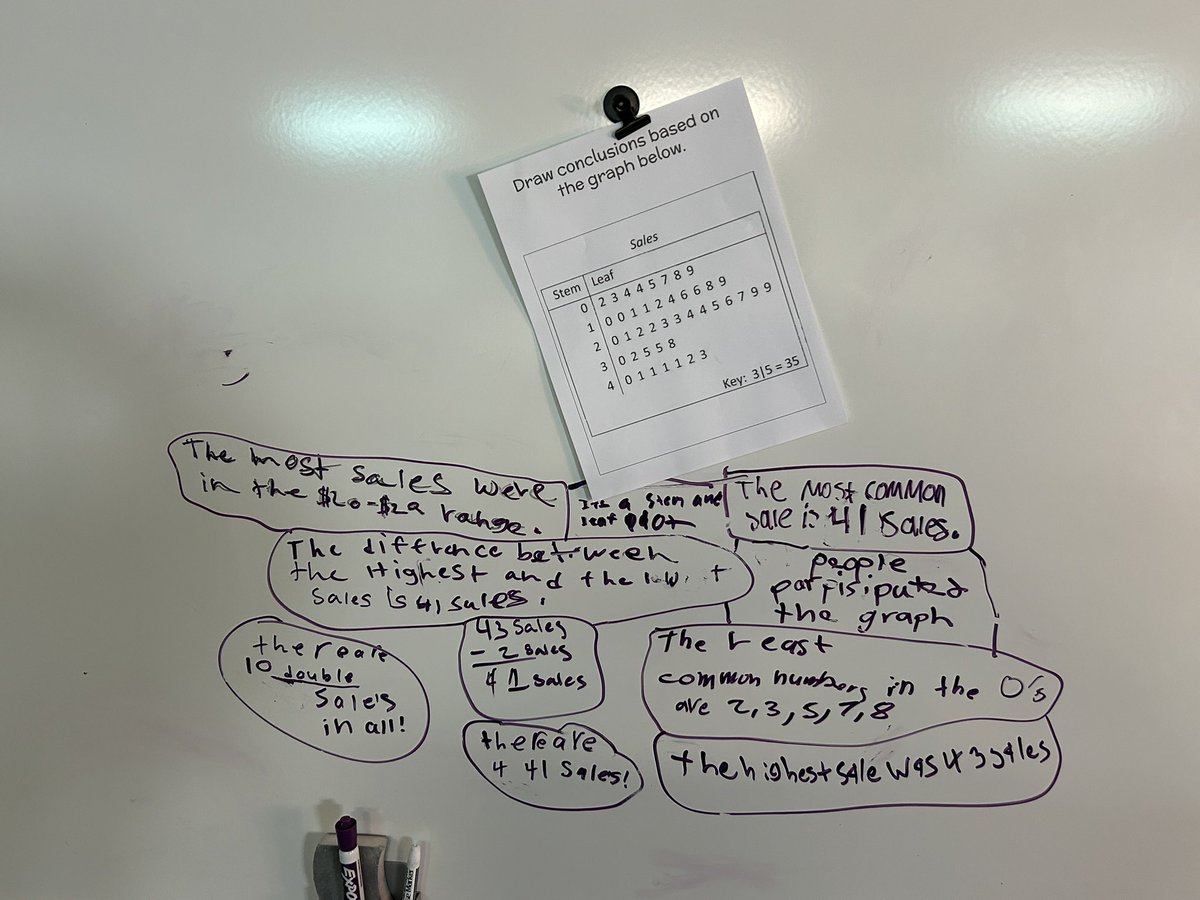 Draw conclusions based on
the graph below.
Sales
Stem Leaf
0 2 3 4 4 5 7 8 9
1 0 0 1 1 2 4 6 6 8 9
2 0 1 2 2 3 3 4 4 5 6 7 9 9
3 0 2 5 5 8
4 0 1 1 1 1 2 3
Key: 3|5 = 35
The most sales were
in the $20-$29 range.
Its a stem and
leaf plot
The Most common
sale is 41 sales.
The diffrence between
the Highest and the low t
Sales is 41 sales.
people
partisiputed
the graph
there are
10 double
Sales
in all!
43 Sales
- 2 Sales
41 Sales
The least
common numbers in the 0's
are 2,3,5,7,8
there are
4 41 Sales!
the highest sale was 43 sales
EXPO